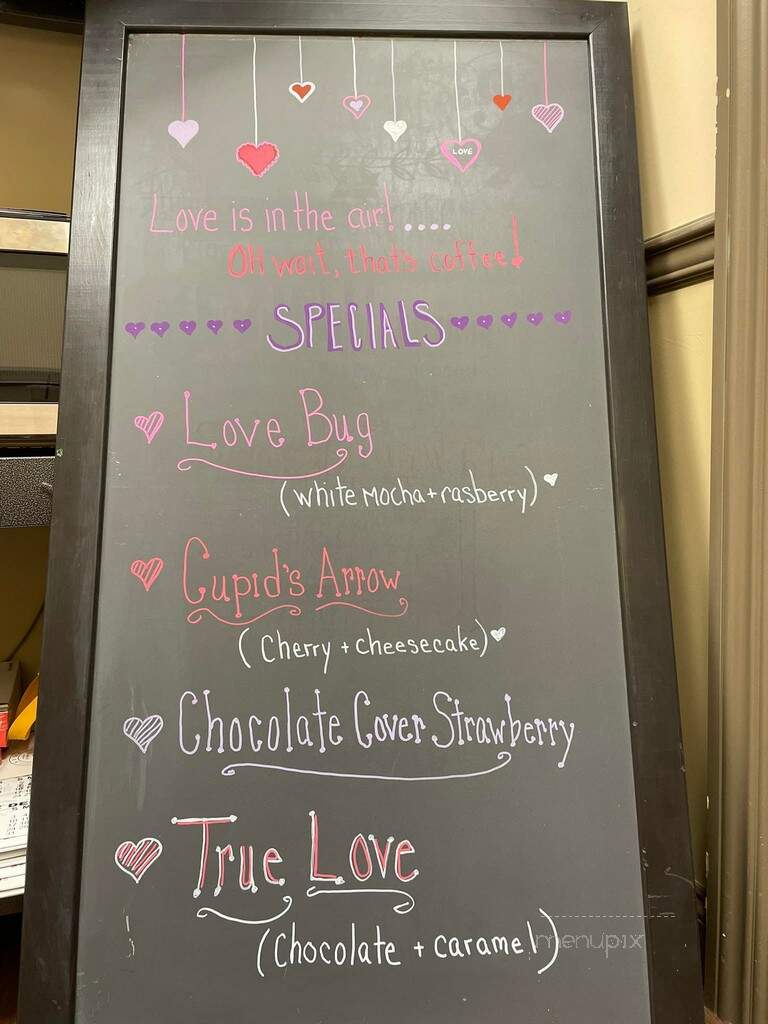 LOVE
Love is in the air!....
OH wait, that's coffee!
SPECIALS
Love Bug
(white Mocha + rasberry)
Cupid's Arrow
(Cherry + cheesecake)
Chocolate Cover Strawberry
True Love
(Chocolate + caramel)
menupix